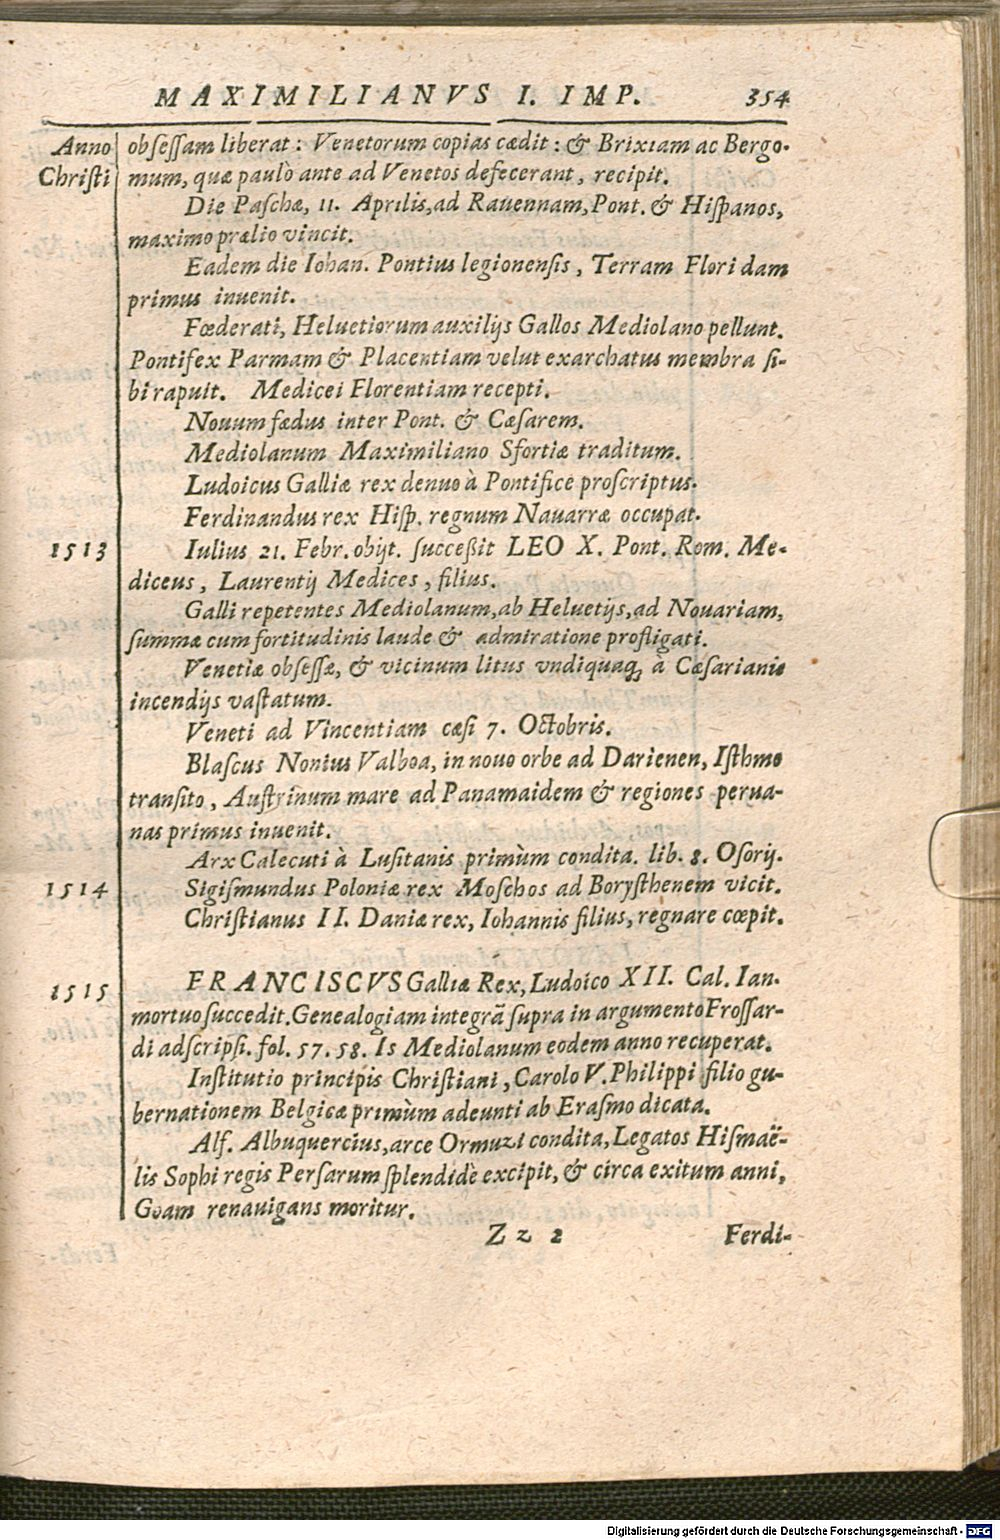 MAXIMILIANVS I. IMP. 354
Anno obſeſſam liberat: Venetorum copias cædit: & Brixiam ac Bergo-
Chriſti mum, quæ paulò ante ad Venetos defecerant, recipit.
Die Paſchæ, 11. Aprilis, ad Rauennam, Pont. & Hiſpanos,
maximo prælio vincit.
Eadem die Iohan. Pontius legionenſis, Terram Floridam
primus inuenit.
Fœderati, Heluetiorum auxilijs Gallos Mediolano pellunt.
Pontifex Parmam & Placentiam velut exarchatus membra ſi-
bi rapuit. Medicei Florentiam recepti.
Nouum fœdus inter Pont. & Cæſarem.
Mediolanum Maximiliano Sfortiæ traditum.
Ludoicus Galliæ rex denuo à Pontifice proſcriptus.
Ferdinandus rex Hiſp. regnum Nauarræ occupat.
1513 Iulius 21. Febr. obijt. ſucceßit LEO X. Pont. Rom. Me-
diceus, Laurentij Medices, filius.
Galli repetentes Mediolanum, ab Heluetijs, ad Nouariam,
ſummæ cum fortitudinis laude & admiratione profligati.
Venetiæ obſeſſæ, & vicinum litus vndiquaq; à Cæſarianis
incendijs vaſtatum.
Veneti ad Vincentiam cæſi 7. Octobris.
Blaſcus Nonius Valboa, in nouo orbe ad Darienen, Iſthmo
tranſito, Auſtrinum mare ad Panamaidem & regiones perua-
nas primus inuenit.
Arx Calecuti à Luſitanis primùm condita. lib. 8. Oſorij.
1514 Sigiſmundus Poloniæ rex Moſchos ad Boryſthenem vicit.
Chriſtianus II. Daniæ rex, Iohannis filius, regnare cœpit.
1515 FRANCISCVS Galliæ Rex, Ludoico XII. Cal. Ian.
mortuo ſuccedit. Genealogiam integrã ſupra in argumento Froſſar-
di adſcripſi. fol. 57. 58. Is Mediolanum eodem anno recuperat.
Inſtitutio principis Chriſtiani, Carolo V. Philippi filio gu-
bernationem Belgicæ primùm adeunti ab Eraſmo dicata.
Alf. Albuquercius, arce Ormuzi condita, Legatos Hiſmaë-
lis Sophi regis Perſarum ſplendidè excipit, & circa exitum anni,
Goam renauigans moritur.
Zz 2 Ferdi-
Digitalisierung gefördert durch die Deutsche Forschungsgemeinschaft - DFG